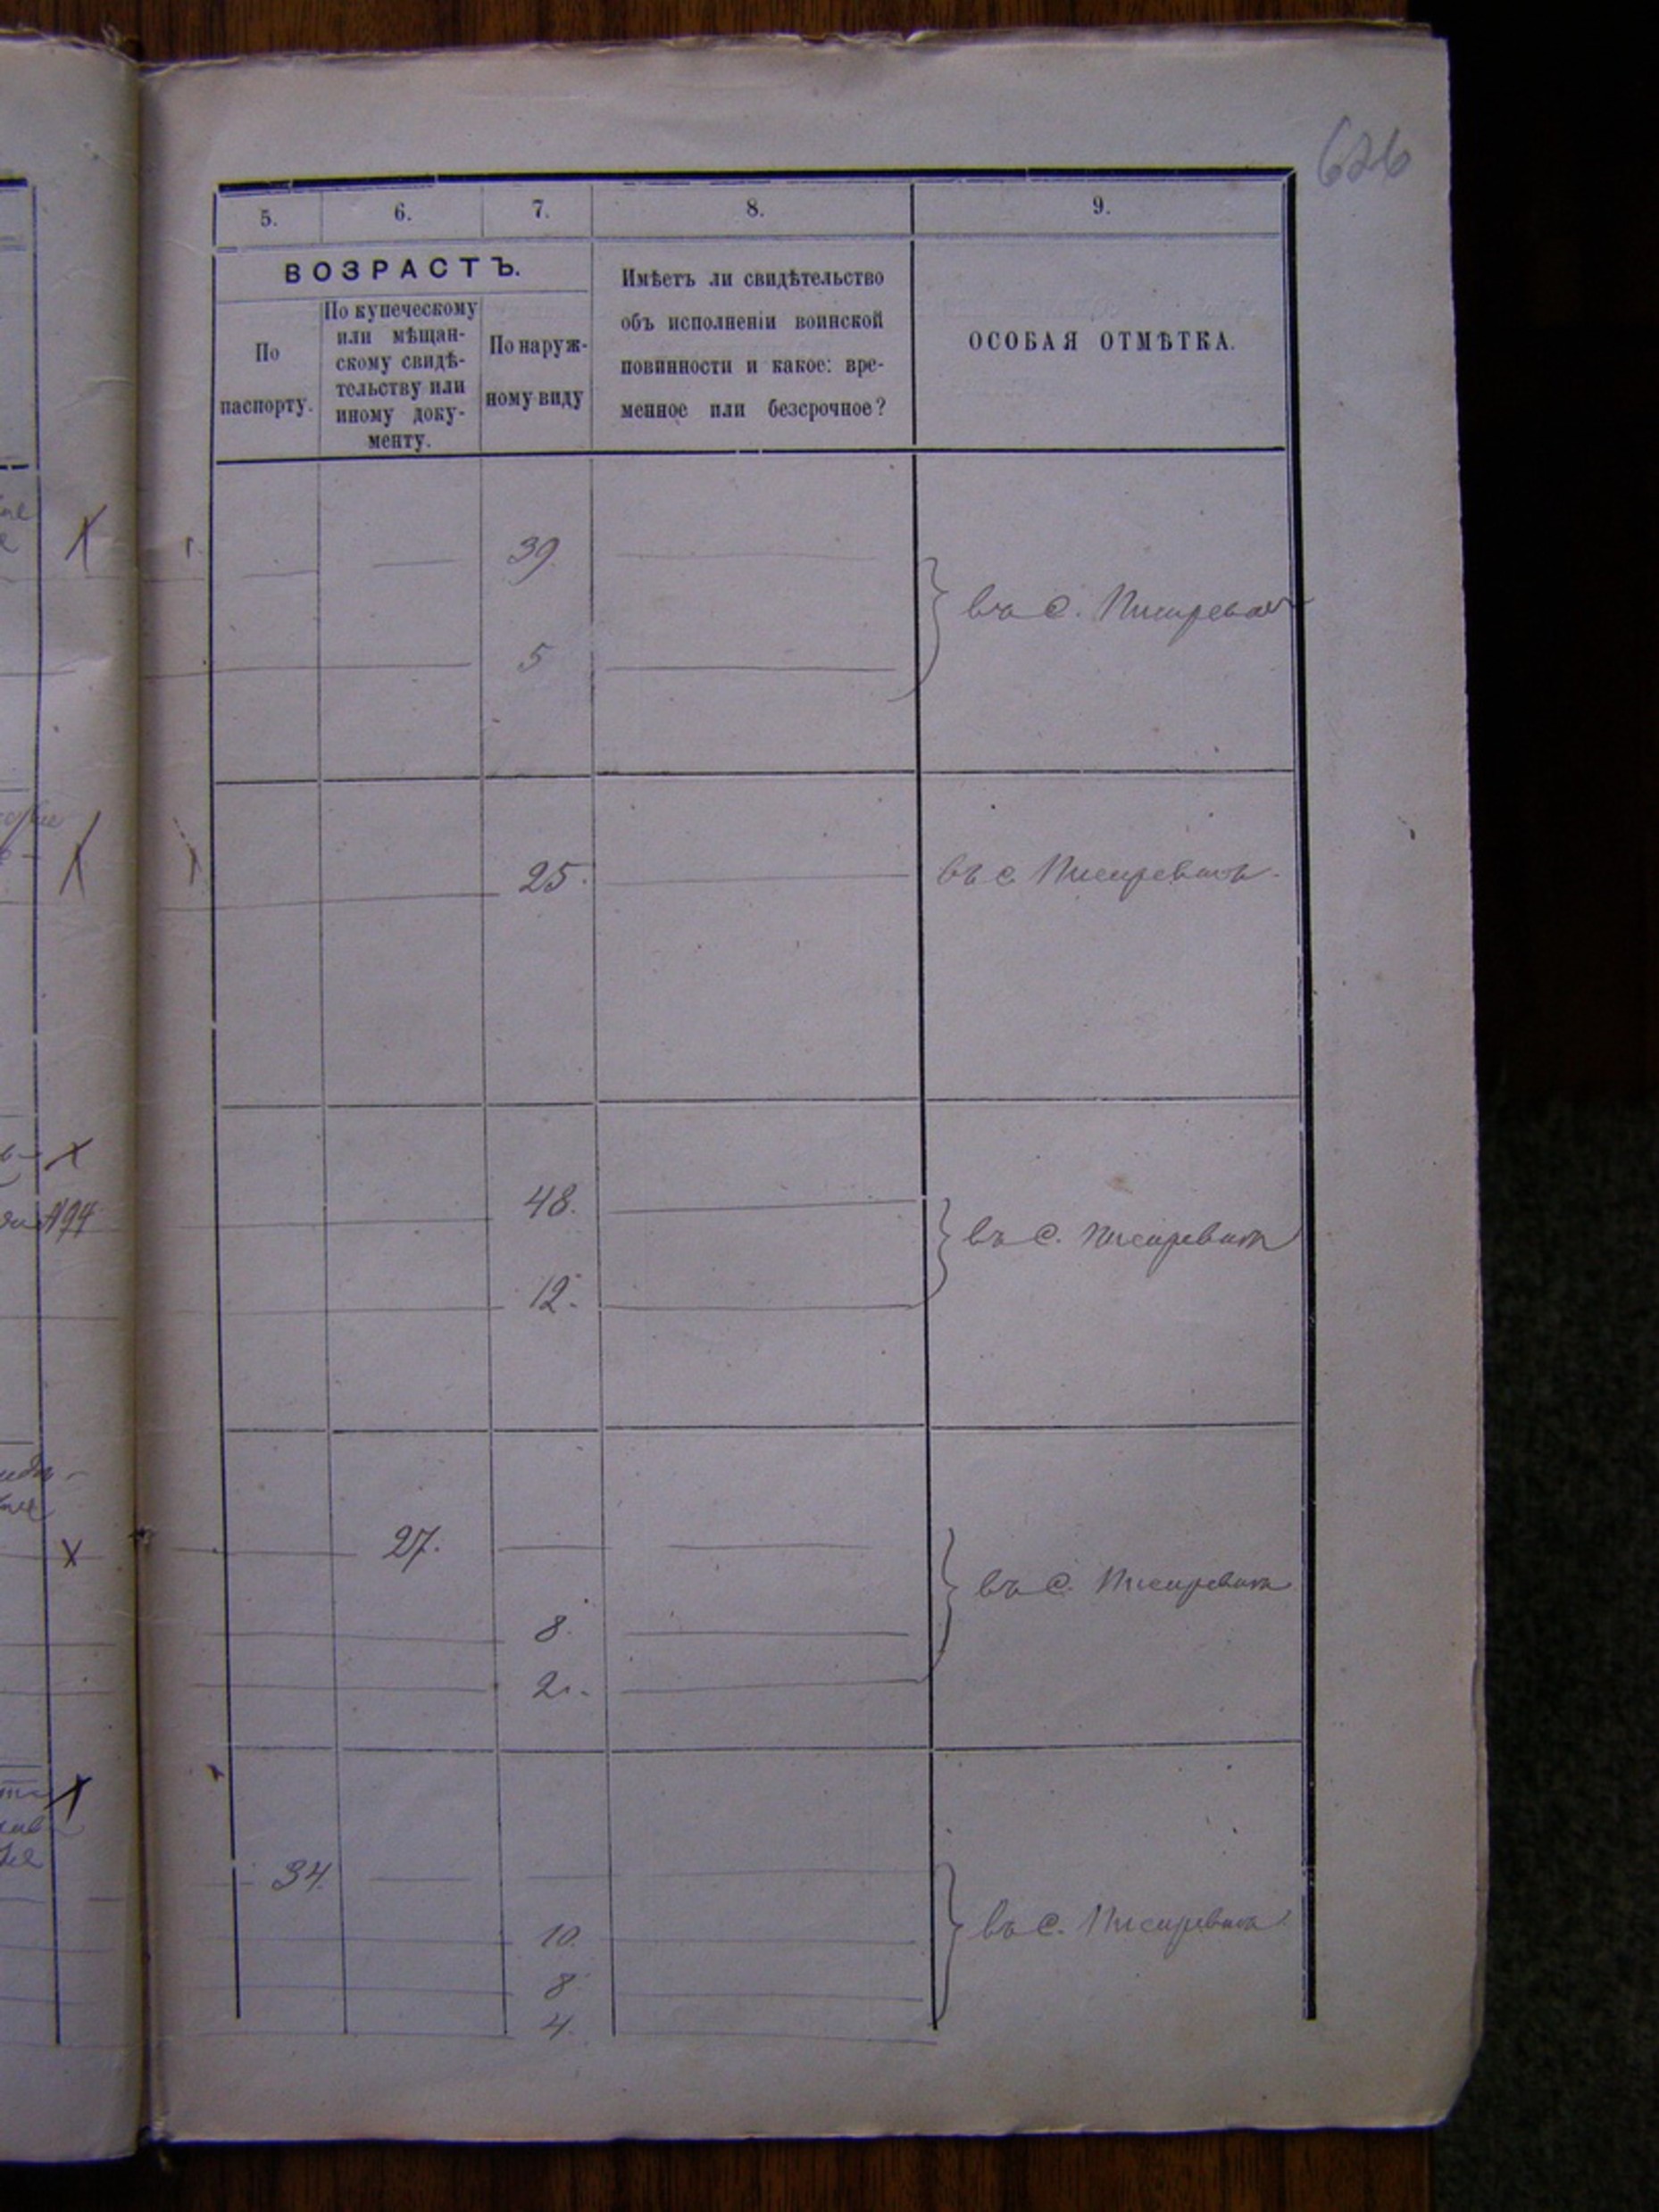 626
5. 6. 7. 8. 9.
ВОЗРАСТЪ.
По
паспорту.
По купеческому
или мѣщан-
скому свидѣ-
тельству или
иному доку-
менту.
По наруж-
ному виду
Имѣетъ ли свидѣтельство
объ исполненіи воинской
повинности и какое: вре-
менное или безсрочное?
ОСОБАЯ ОТМѢТКА.
39.
въ с.
5
25.
въ с.
48.
въ с.
12.
27.
въ с.
8.
2.
34.
10.
въ с.
8.
4.